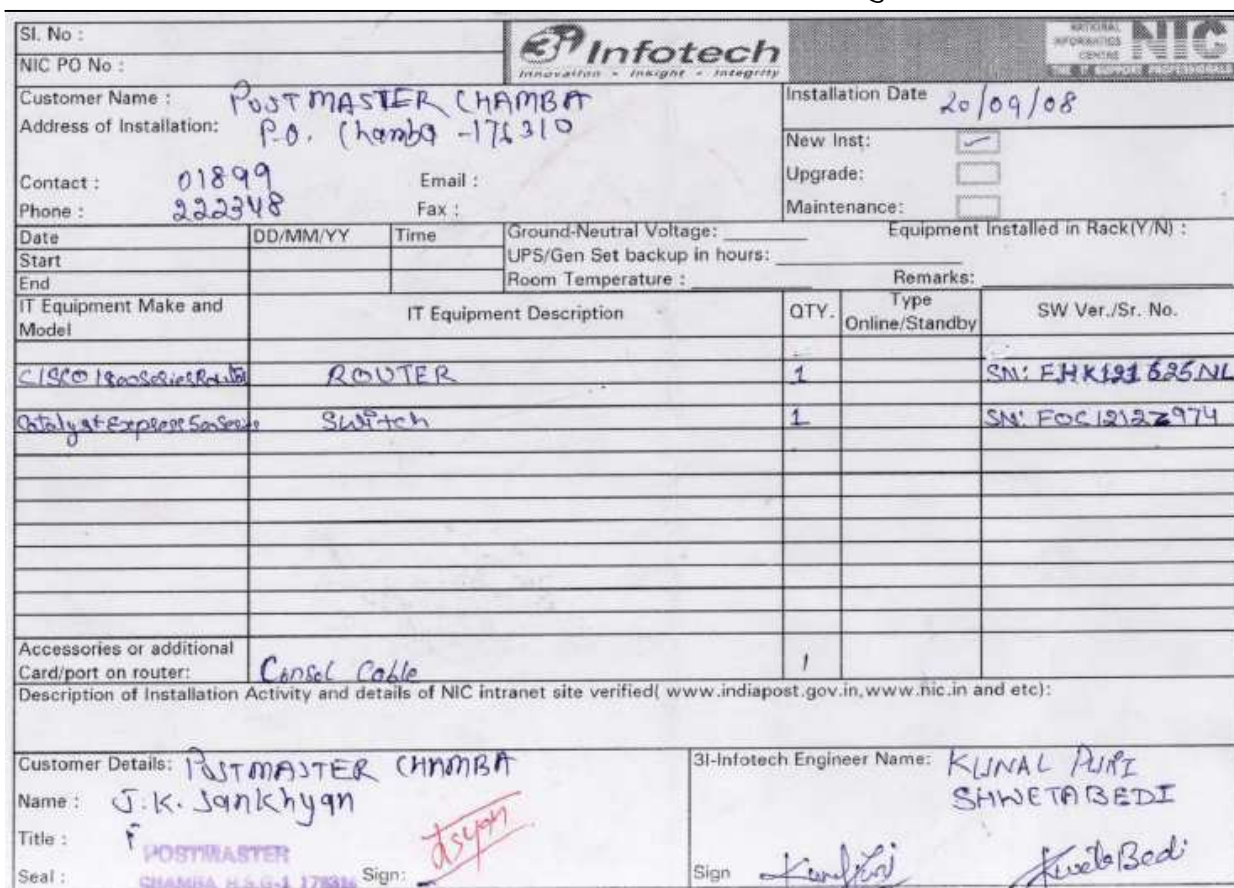 Sl. No :
NIC PO No :
3i Infotech
Innovation - Insight - Integrity
NATIONAL
INFORMATICS
CENTRE
NIC
THE IT SUPPORT PROFESSIONALS
Customer Name : POSTMASTER CHAMBA
Address of Installation: P.O. Chamba -176310
Contact : 01899 Email :
Phone : 222348 Fax :
Installation Date 20/09/08
New Inst: ✓
Upgrade:
Maintenance:
Date DD/MM/YY Time Ground-Neutral Voltage: Equipment Installed in Rack(Y/N) :
Start UPS/Gen Set backup in hours:
End Room Temperature : Remarks:
IT Equipment Make and Model IT Equipment Description QTY. Type Online/Standby SW Ver./Sr. No.
CISCO 1800 Series Router ROUTER 1 SN: FHK121625NL
Catalyst Express 500 Series Switch 1 SN: FOC1212Z974
Accessories or additional
Card/port on router: Consol Cable 1
Description of Installation Activity and details of NIC intranet site verified( www.indiapost.gov.in,www.nic.in and etc):
Customer Details: POSTMASTER CHAMBA
Name : J.K. Jankhyan
Title :
POSTMASTER
Seal : CHAMBA H.S.G-1 Sign:
3I-Infotech Engineer Name: KUNAL PURI
SHWETA BEDI
Sign Kunal Puri Shweta Bedi